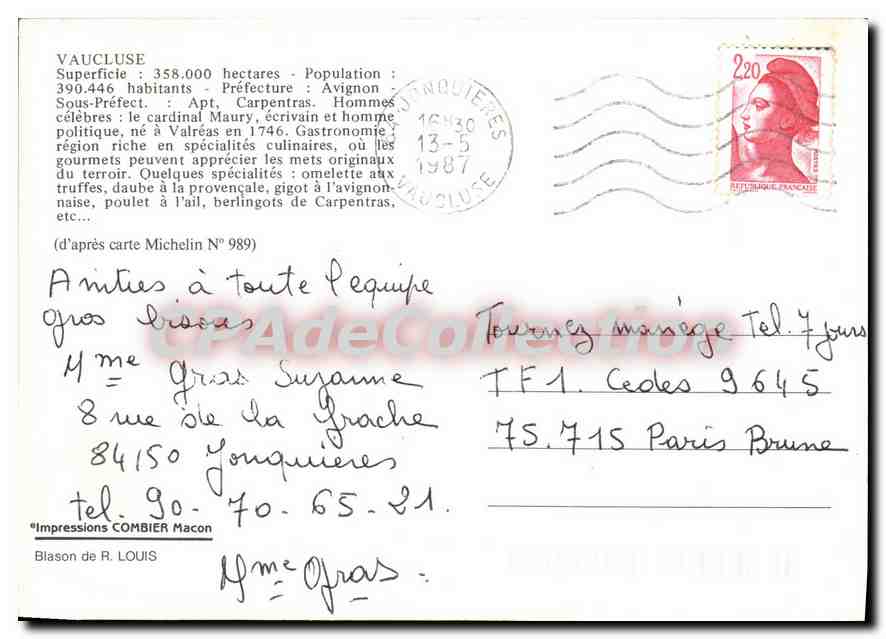 VAUCLUSE
Superficie : 358.000 hectares - Population :
390.446 habitants - Préfecture : Avignon -
Sous-Préfect. : Apt, Carpentras. Hommes
célèbres : le cardinal Maury, écrivain et homme
politique, né à Valréas en 1746. Gastronomie :
région riche en spécialités culinaires, où les
gourmets peuvent apprécier les mets originaux
du terroir. Quelques spécialités : omelette aux
truffes, daube à la provençale, gigot à l'avignon-
naise, poulet à l'ail, berlingots de Carpentras,
etc...
(d'après carte Michelin N° 989)
JONQUIERES
16H30
13-5
1987
VAUCLUSE
2,20
POSTES
REPUBLIQUE FRANCAISE
Amities à toute l'equipe
gros bisous
Mme Gras Suzanne
8 rue de la Grache
84150 Jonquières
tel. 90-70-65-21.
Mme Gras.
Tournez manège Tel. 7 jours
TF1. Cedes 9645
75.715 Paris Brune
CPAdeCollection
Impressions COMBIER Macon
Blason de R. LOUIS